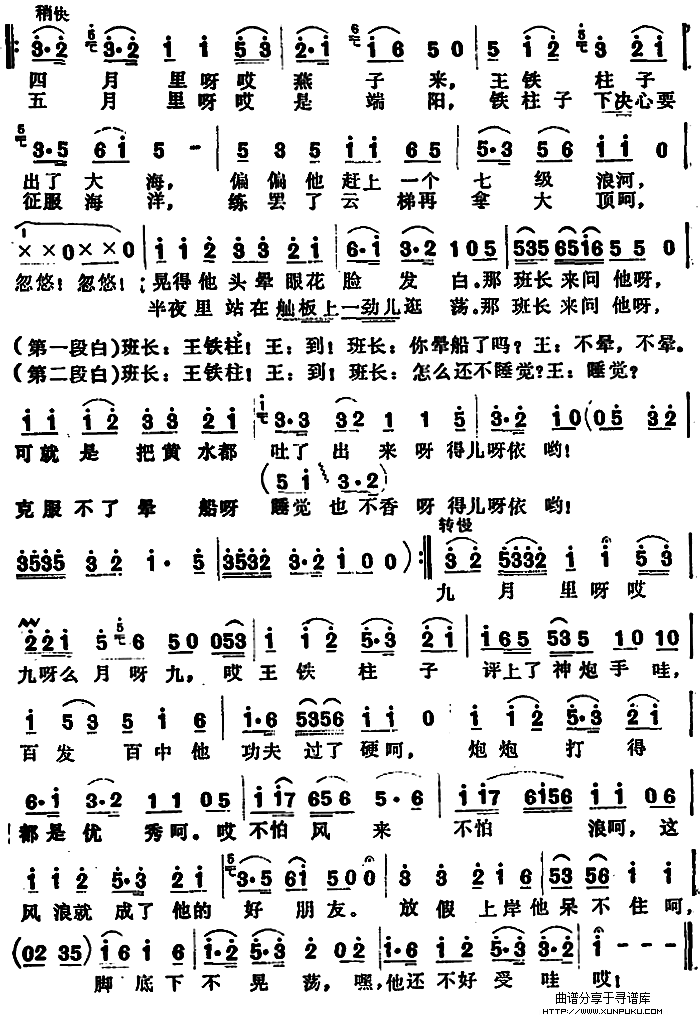 稍快
四月里呀哎燕子来，王铁柱子
五月里呀哎是端阳，铁柱子下决心要
出了大海，偏偏他赶上一个七级浪河，
征服海洋，练罢了云梯再拿大顶呵，
忽悠！忽悠！晃得他头晕眼花脸发白。那班长来问他呀，
半夜里站在舢板上一劲儿逛荡。那班长来问他呀，
（第一段白）班长：王铁柱！王：到！班长：你晕船了吗？王：不晕，不晕。
（第二段白）班长：王铁柱！王：到！班长：怎么还不睡觉？王：睡觉？
可就是把黄水都吐了出来呀得儿呀依哟！
克服不了晕船呀睡觉也不香呀得儿呀依哟！
转慢
九月里呀哎
九呀么月呀九，哎王铁柱子评上了神炮手哇，
百发百中他功夫过了硬呵，炮炮打得
都是优秀呵。哎不怕风来不怕浪呵，这
风浪就成了他的好朋友。放假上岸他呆不住呵，
脚底下不晃荡，嘿，他还不好受哇哎！
曲谱分享于寻谱库
HTTP://WWW.XUNPUKU.COM